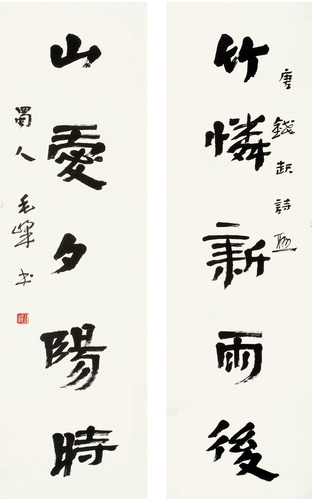 唐錢起詩聯
竹憐新雨後
山愛夕陽時
蜀人毛书